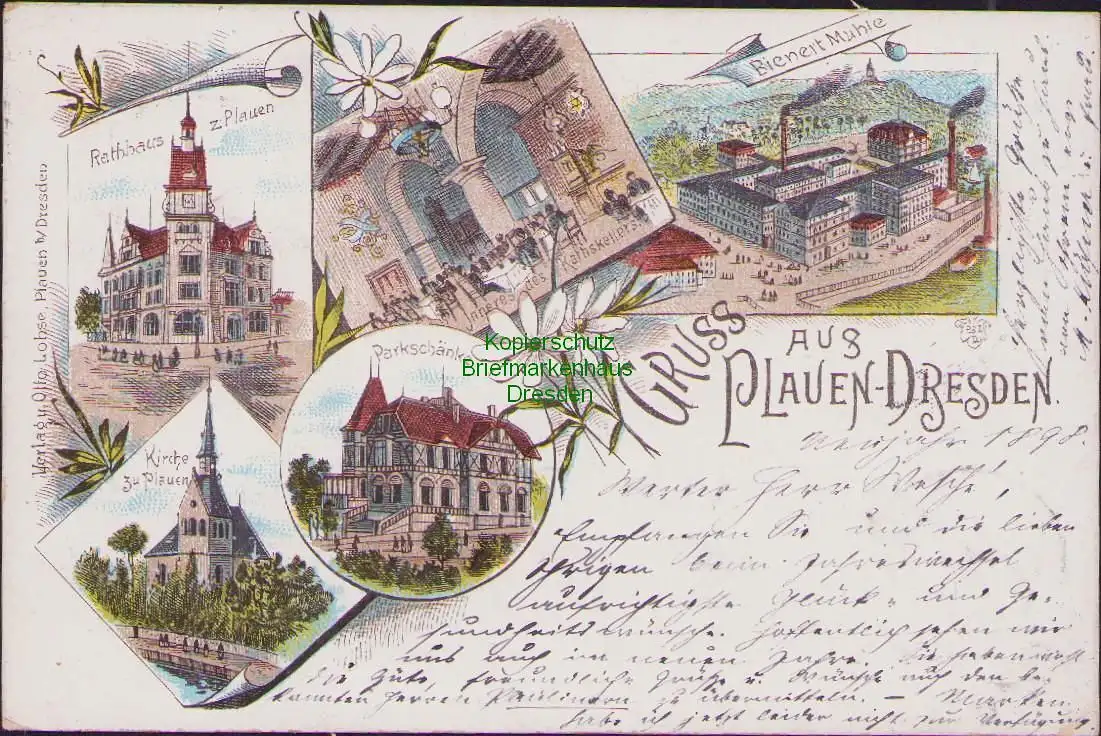 Rathhaus z. Plauen
Inneres des Rathskellers
Bienert Mühle
Parkschänke
Kirche
zu Plauen
Verlag v. Otto Lohse, Plauen b/Dresden
GRUSS AUS
PLAUEN-DRESDEN.
Kopierschutz
Briefmarkenhaus
Dresden
Neujahr 1898.
Werter Herr
Empfangen Sie und die lieben
Ihrigen beim Jahreswechsel
aufrichtigste Glück- und Ge-
sundheitswünsche. Hoffentlich sehen wir
uns auch im neuen Jahre. Sie haben wohl
die Güte, freundliche Grüße u. Wünsche auch den be-
kannten Herren Paulinern zu übermitteln. — Marken
habe ich jetzt leider nicht zur Verfügung